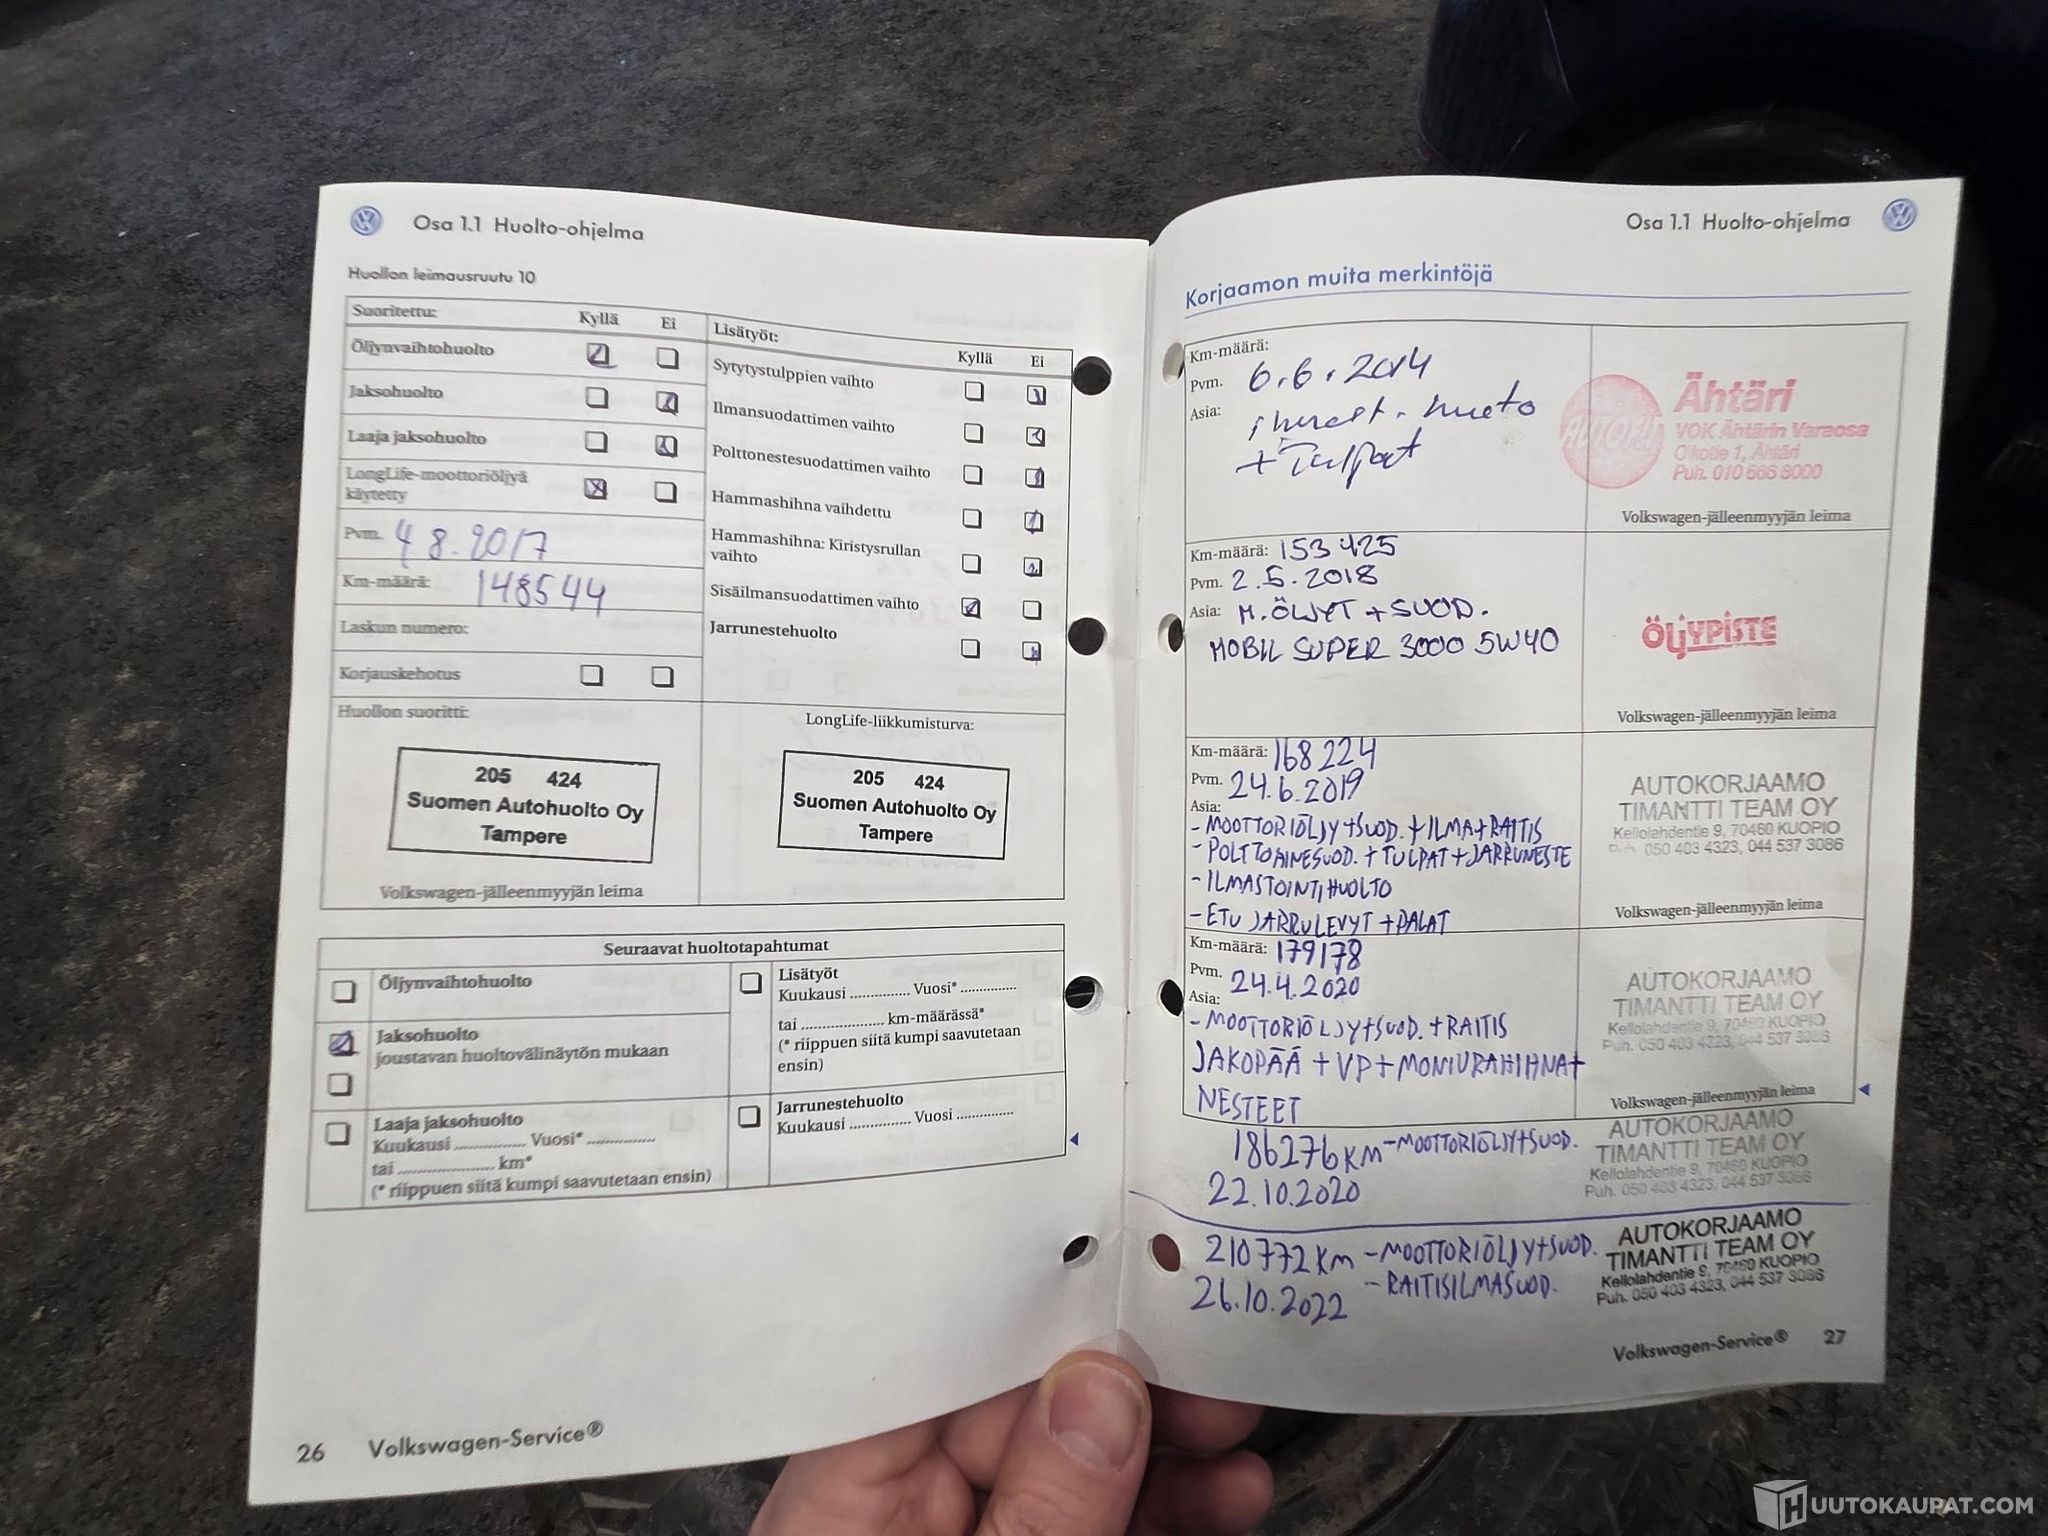 Osa 1.1 Huolto-ohjelma
Huollon leimausruutu 10
Suoritettu: Kyllä Ei
Öljynvaihtohuolto
Jaksohuolto
Laaja jaksohuolto
LongLife-moottoriöljyä
käytetty
Pvm. 4 8.2017
Km-määrä: 148544
Laskun numero:
Korjauskehotus
Huollon suoritti:
205 424
Suomen Autohuolto Oy
Tampere
Volkswagen-jälleenmyyjän leima
Lisätyöt: Kyllä Ei
Sytytystulppien vaihto
Ilmansuodattimen vaihto
Polttonestesuodattimen vaihto
Hammashihna vaihdettu
Hammashihna: Kiristysrullan
vaihto
Sisäilmansuodattimen vaihto
Jarrunestehuolto
LongLife-liikkumisturva:
205 424
Suomen Autohuolto Oy
Tampere
Seuraavat huoltotapahtumat
Öljynvaihtohuolto
Jaksohuolto
joustavan huoltovälinäytön mukaan
Laaja jaksohuolto
Kuukausi ............... Vuosi* ...............
tai ..................... km*
(* riippuen siitä kumpi saavutetaan ensin)
Lisätyöt
Kuukausi ............... Vuosi* ...............
tai ..................... km-määrässä*
(* riippuen siitä kumpi saavutetaan
ensin)
Jarrunestehuolto
Kuukausi ............... Vuosi ...............
26 Volkswagen-Service®
Osa 1.1 Huolto-ohjelma
Korjaamon muita merkintöjä
Km-määrä:
Pvm. 6.6.2014
Asia:
+ Tulpat
Ähtäri
VOK Ähtärin Varaosa
Oikotie 1, Ähtäri
Puh. 010 666 8000
Volkswagen-jälleenmyyjän leima
Km-määrä: 153 425
Pvm. 2.5.2018
Asia: M.ÖLJYT + SUOD.
MOBIL SUPER 3000 5W40
ÖLJYPISTE
Volkswagen-jälleenmyyjän leima
Km-määrä: 168 224
Pvm. 24.6.2019
Asia:
- MOOTTORIÖLJY+SUOD. + ILMA+RAITIS
- POLTTOAINESUOD. + TULPAT + JARRUNESTE
- ILMASTOINTIHUOLTO
- ETU JARRULEVYT + PALAT
AUTOKORJAAMO
TIMANTTI TEAM OY
Kellolahdentie 9, 70460 KUOPIO
Puh. 050 403 4323, 044 537 3086
Volkswagen-jälleenmyyjän leima
Km-määrä: 179178
Pvm. 24.4.2020
Asia:
- MOOTTORIÖLJY+SUOD. + RAITIS
JAKOPÄÄ + VP + MONIURAHIHNA+
NESTEET
AUTOKORJAAMO
TIMANTTI TEAM OY
Kellolahdentie 9, 70460 KUOPIO
Puh. 050 403 4323, 044 537 3086
Volkswagen-jälleenmyyjän leima
186276 KM - MOOTTORIÖLJY+SUOD.
22.10.2020
AUTOKORJAAMO
TIMANTTI TEAM OY
Kellolahdentie 9, 70460 KUOPIO
Puh. 050 403 4323, 044 537 3086
210772 KM - MOOTTORIÖLJY+SUOD.
26.10.2022 - RAITISILMASUOD.
AUTOKORJAAMO
TIMANTTI TEAM OY
Kellolahdentie 9, 70460 KUOPIO
Puh. 050 403 4323, 044 537 3086
Volkswagen-Service® 27
HUUTOKAUPAT.COM